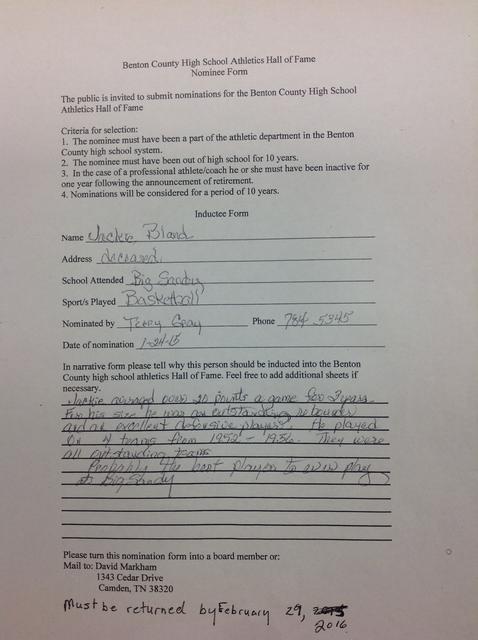 Benton County High School Athletics Hall of Fame
Nominee Form
The public is invited to submit nominations for the Benton County High School
Athletics Hall of Fame
Criteria for selection:
1. The nominee must have been a part of the athletic department in the Benton
County high school system.
2. The nominee must have been out of high school for 10 years.
3. In the case of a professional athlete/coach he or she must have been inactive for
one year following the announcement of retirement.
4. Nominations will be considered for a period of 10 years.
Inductee Form
Name Jackie Bland
Address deceased
School Attended Big Sandy
Sport/s Played Basketball
Nominated by Terry Gray Phone 784 5345
Date of nomination 1-24-15
In narrative form please tell why this person should be inducted into the Benton
County high school athletics Hall of Fame. Feel free to add additional sheets if
necessary.
Jackie averaged over 20 points a game for 3 years.
For his size he was an outstanding rebounder
and an excellent defensive player. He played
on 4 teams from 1952 - 1956. They were
all outstanding teams
Probably the best player to ever play
at Big Sandy
Please turn this nomination form into a board member or:
Mail to: David Markham
1343 Cedar Drive
Camden, TN 38320
Must be returned by February 29, 2015
2016